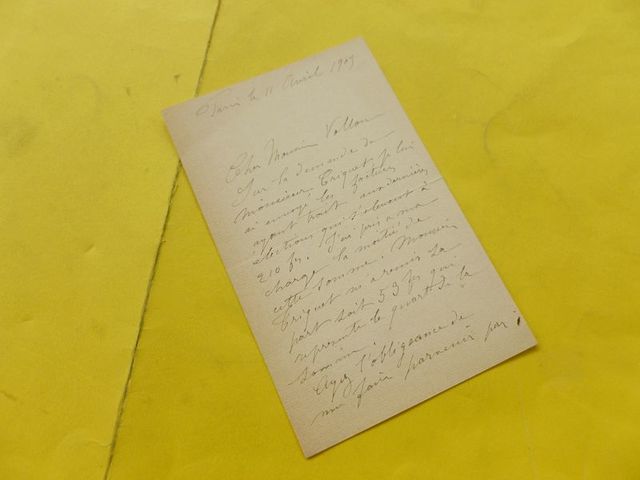 Paris le 11 Avril 1909
Cher Monsieur Vallon
Sur la demande de
Monsieur Triquet je lui
ai envoyé les factures
ayant trait aux dernières
élections qui s'élevaient à
210 frs. J'ai pris à ma
charge la moitié de
cette somme. Monsieur
Triquet m'a remis sa
part soit 53 frs qui
représente le quart de la
somme.
Ayez l'obligeance de
me faire parvenir par